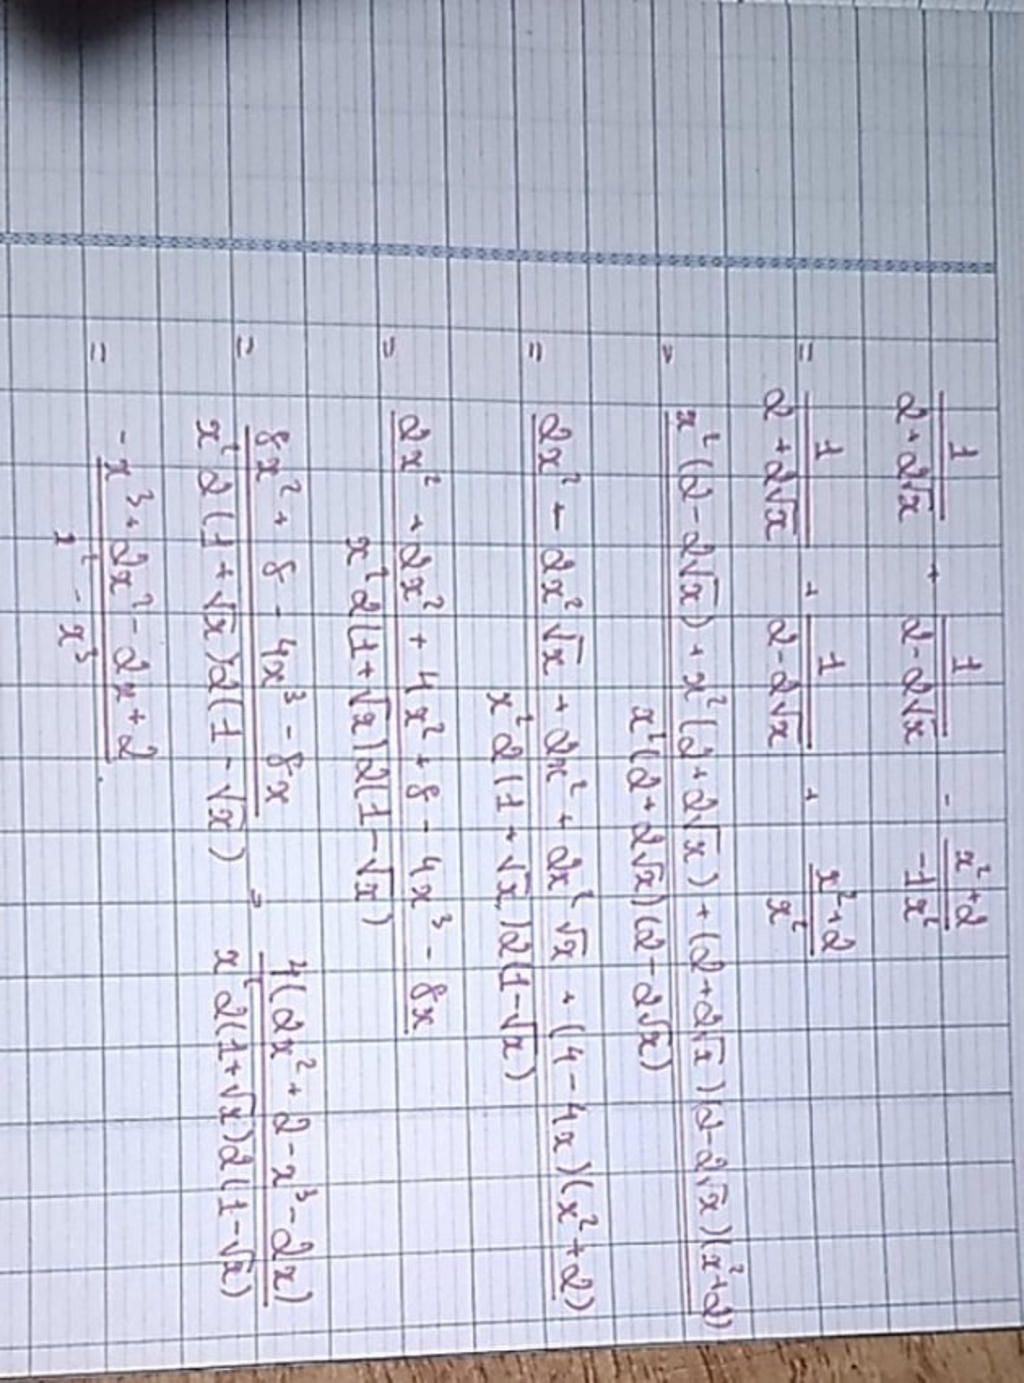 1/(2+2√x) + 1/(2-2√x) - (x²+2)/(-1x²)
= 1/(2+2√x) + 1/(2-2√x) + (x²+2)/x²
= (x²(2-2√x) + x²(2+2√x) + (2+2√x)(2-2√x)(x²+2))/(x²(2+2√x)(2-2√x))
= (2x² - 2x²√x + 2x² + 2x²√x + (4-4x)(x²+2))/(x²2(1+√x)2(1-√x))
= (2x² + 2x² + 4x² + 8 - 4x³ - 8x)/(x²2(1+√x)2(1-√x))
= (8x² + 8 - 4x³ - 8x)/(x²2(1+√x)2(1-√x)) = 4(2x² + 2 - x³ - 2x)/(x²2(1+√x)2(1-√x))
= (-x³ + 2x² - 2x + 2)/(x² - x³).